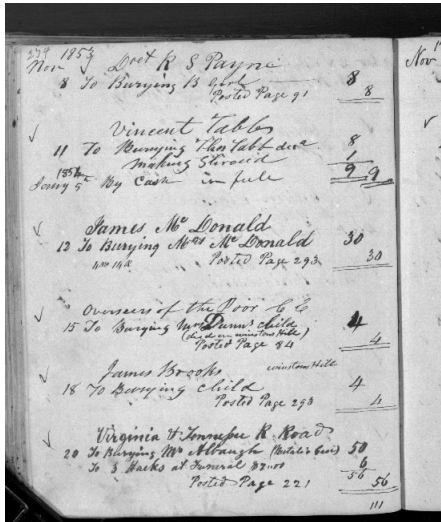 274 1853
Nov Doct R S Payne
8 To Burying B Girl 8
Posted Page 91 8
Vincent Tabbs
11 To Burying Thos Tabb decd 8
Making Shroud 1
1854 9 9
Jany 5th By Cash in full
James McDonald
12 To Burying Mrs McDonald 30
Posted Page 293 30
Overseers of the Poor C C
15 To Burying Mrs Dunn's Child 4
(died on winston's Hill)
Posted Page 84 4
James Brooks winstons Hill
18 To Burying child 4
Posted Page 293 4
Virginia & Tennessee R. Road
20 To Burying Mr Albaugh (Metalic Case) 50
To 3 Hacks at Funeral $2.00 6
56
Posted Page 221 56
111
Nov